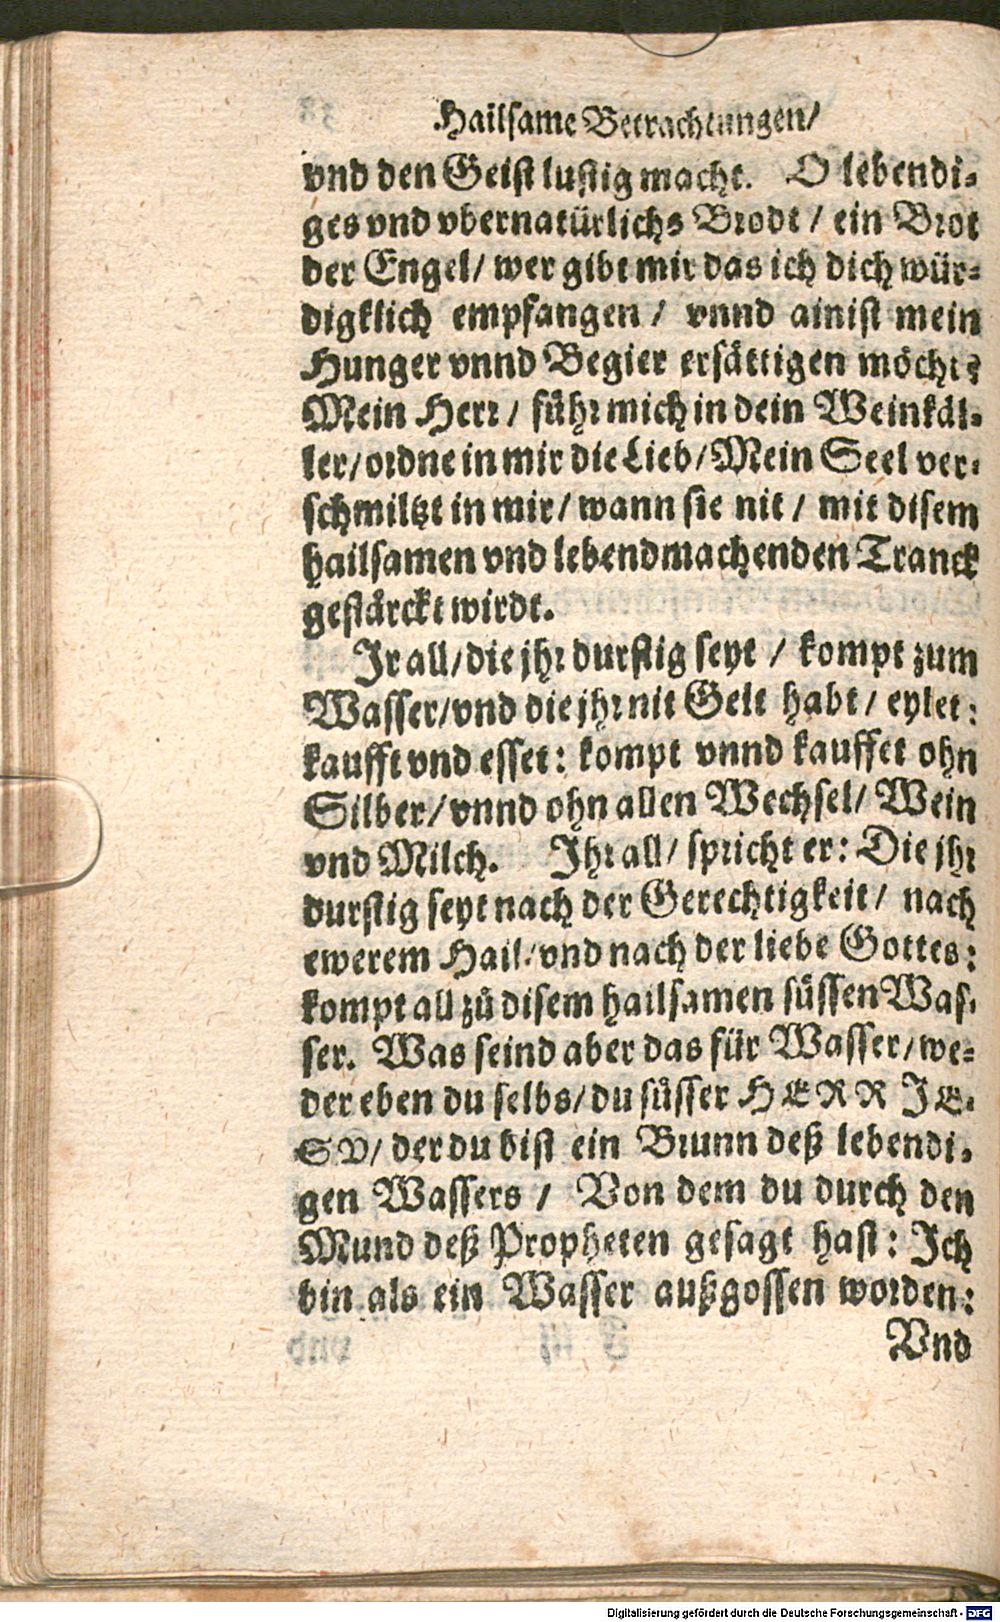 Hailsame Betrachtungen/
vnd den Geist lustig macht. O lebendi-
ges vnd vbernatürlichs Brodt / ein Brot
der Engel/ wer gibt mir das ich dich wür-
digklich empfangen / vnnd ainist mein
Hunger vnnd Begier ersättigen möcht?
Mein Herr / führ mich in dein Weinkäl-
ler/ ordne in mir die Lieb/ Mein Seel ver-
schmiltzt in mir/ wann sie nit / mit disem
hailsamen vnd lebendmachenden Tranck
gestärckt wirdt.
Ir all/ die jhr durstig seyt / kompt zum
Wasser/ vnd die jhr nit Gelt habt / eylet:
kaufft vnd esset: kompt vnnd kauffet ohn
Silber/ vnnd ohn allen Wechsel/ Wein
vnd Milch. Ihr all/ spricht er: Die jhr
durstig seyt nach der Gerechtigkeit/ nach
ewerem Hail/ vnd nach der liebe Gottes:
kompt all zů disem hailsamen süssen Was-
ser. Was seind aber das für Wasser/ we-
der eben du selbs/ du süsser HERR JE-
SV/ der du bist ein Brunn deß lebendi-
gen Wassers / Von dem du durch den
Mund deß Propheten gesagt hast: Ich
bin als ein Wasser außgossen worden:
Vnd
Digitalisierung gefördert durch die Deutsche Forschungsgemeinschaft - DFG